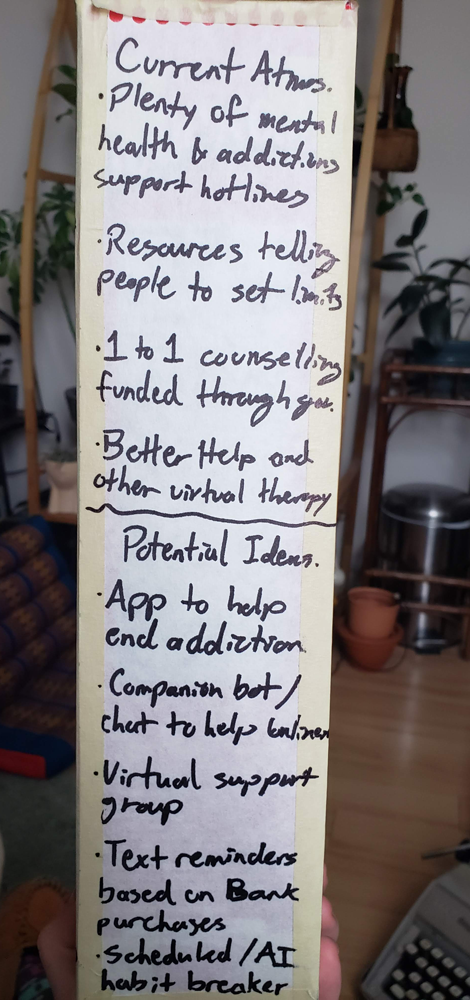 Current Atmos.
· Plenty of mental
health & addictions
support hotlines
· Resources telling
people to set limits
· 1 to 1 counselling
funded through gov.
· Better Help and
other virtual therapy
Potential Ideas.
· App to help
end addiction
· Companion bot/
chat to help
· Virtual support
group
· Text reminders
based on Bank
purchases
· Scheduled/AI
habit breaker